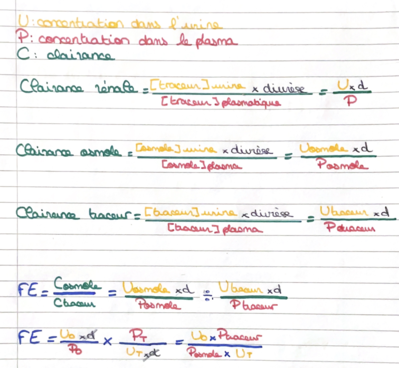 U: concentration dans l'urine
P: concentration dans le plasma
C: clairance
Clairance rénale = [traceur] urine × diurèse / [traceur] plasmatique = U × d / P
Clairance osmole = [osmole] urine × diurèse / [osmole] plasma = Uosmole × d / Posmole
Clairance traceur = [traceur] urine × diurèse / [traceur] plasma = Utraceur × d / Ptraceur
FE = Cosmole / Ctraceur = Uosmole × d / Posmole ÷ Utraceur × d / Ptraceur
FE = Uo × d / Po × PT / UT × d = Uo × Ptraceur / Posmole × UT